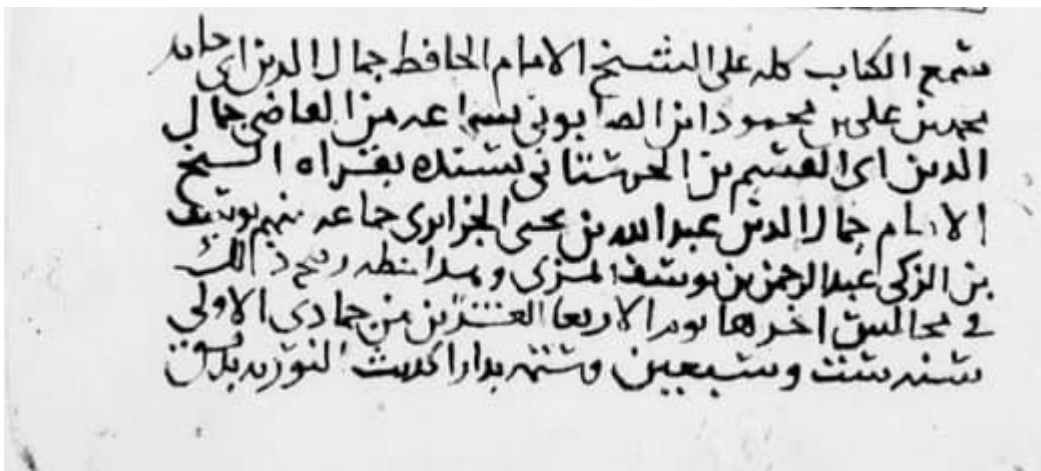 سمع الكتاب كله على الشيخ الامام الحافظ جمال الدين ابي حامد
محمد بن علي بن محمود ابن الصابوني بسماعه من القاضي جمال
الدين ابي القسم بن الحرستاني بسنده بقراه الشيخ
الامام جمال الدين عبد الله بن يحيى الجزايري جماعه منهم يوسف
بن الزكي عبد الرحمن بن يوسف المزي وهذا خطه وصح ذلك
في مجالس اخرها يوم الاربعا العشرين من جمادى الاولى
سنه ست وسبعين وستمه بدار الحديث النوريه بدمشق